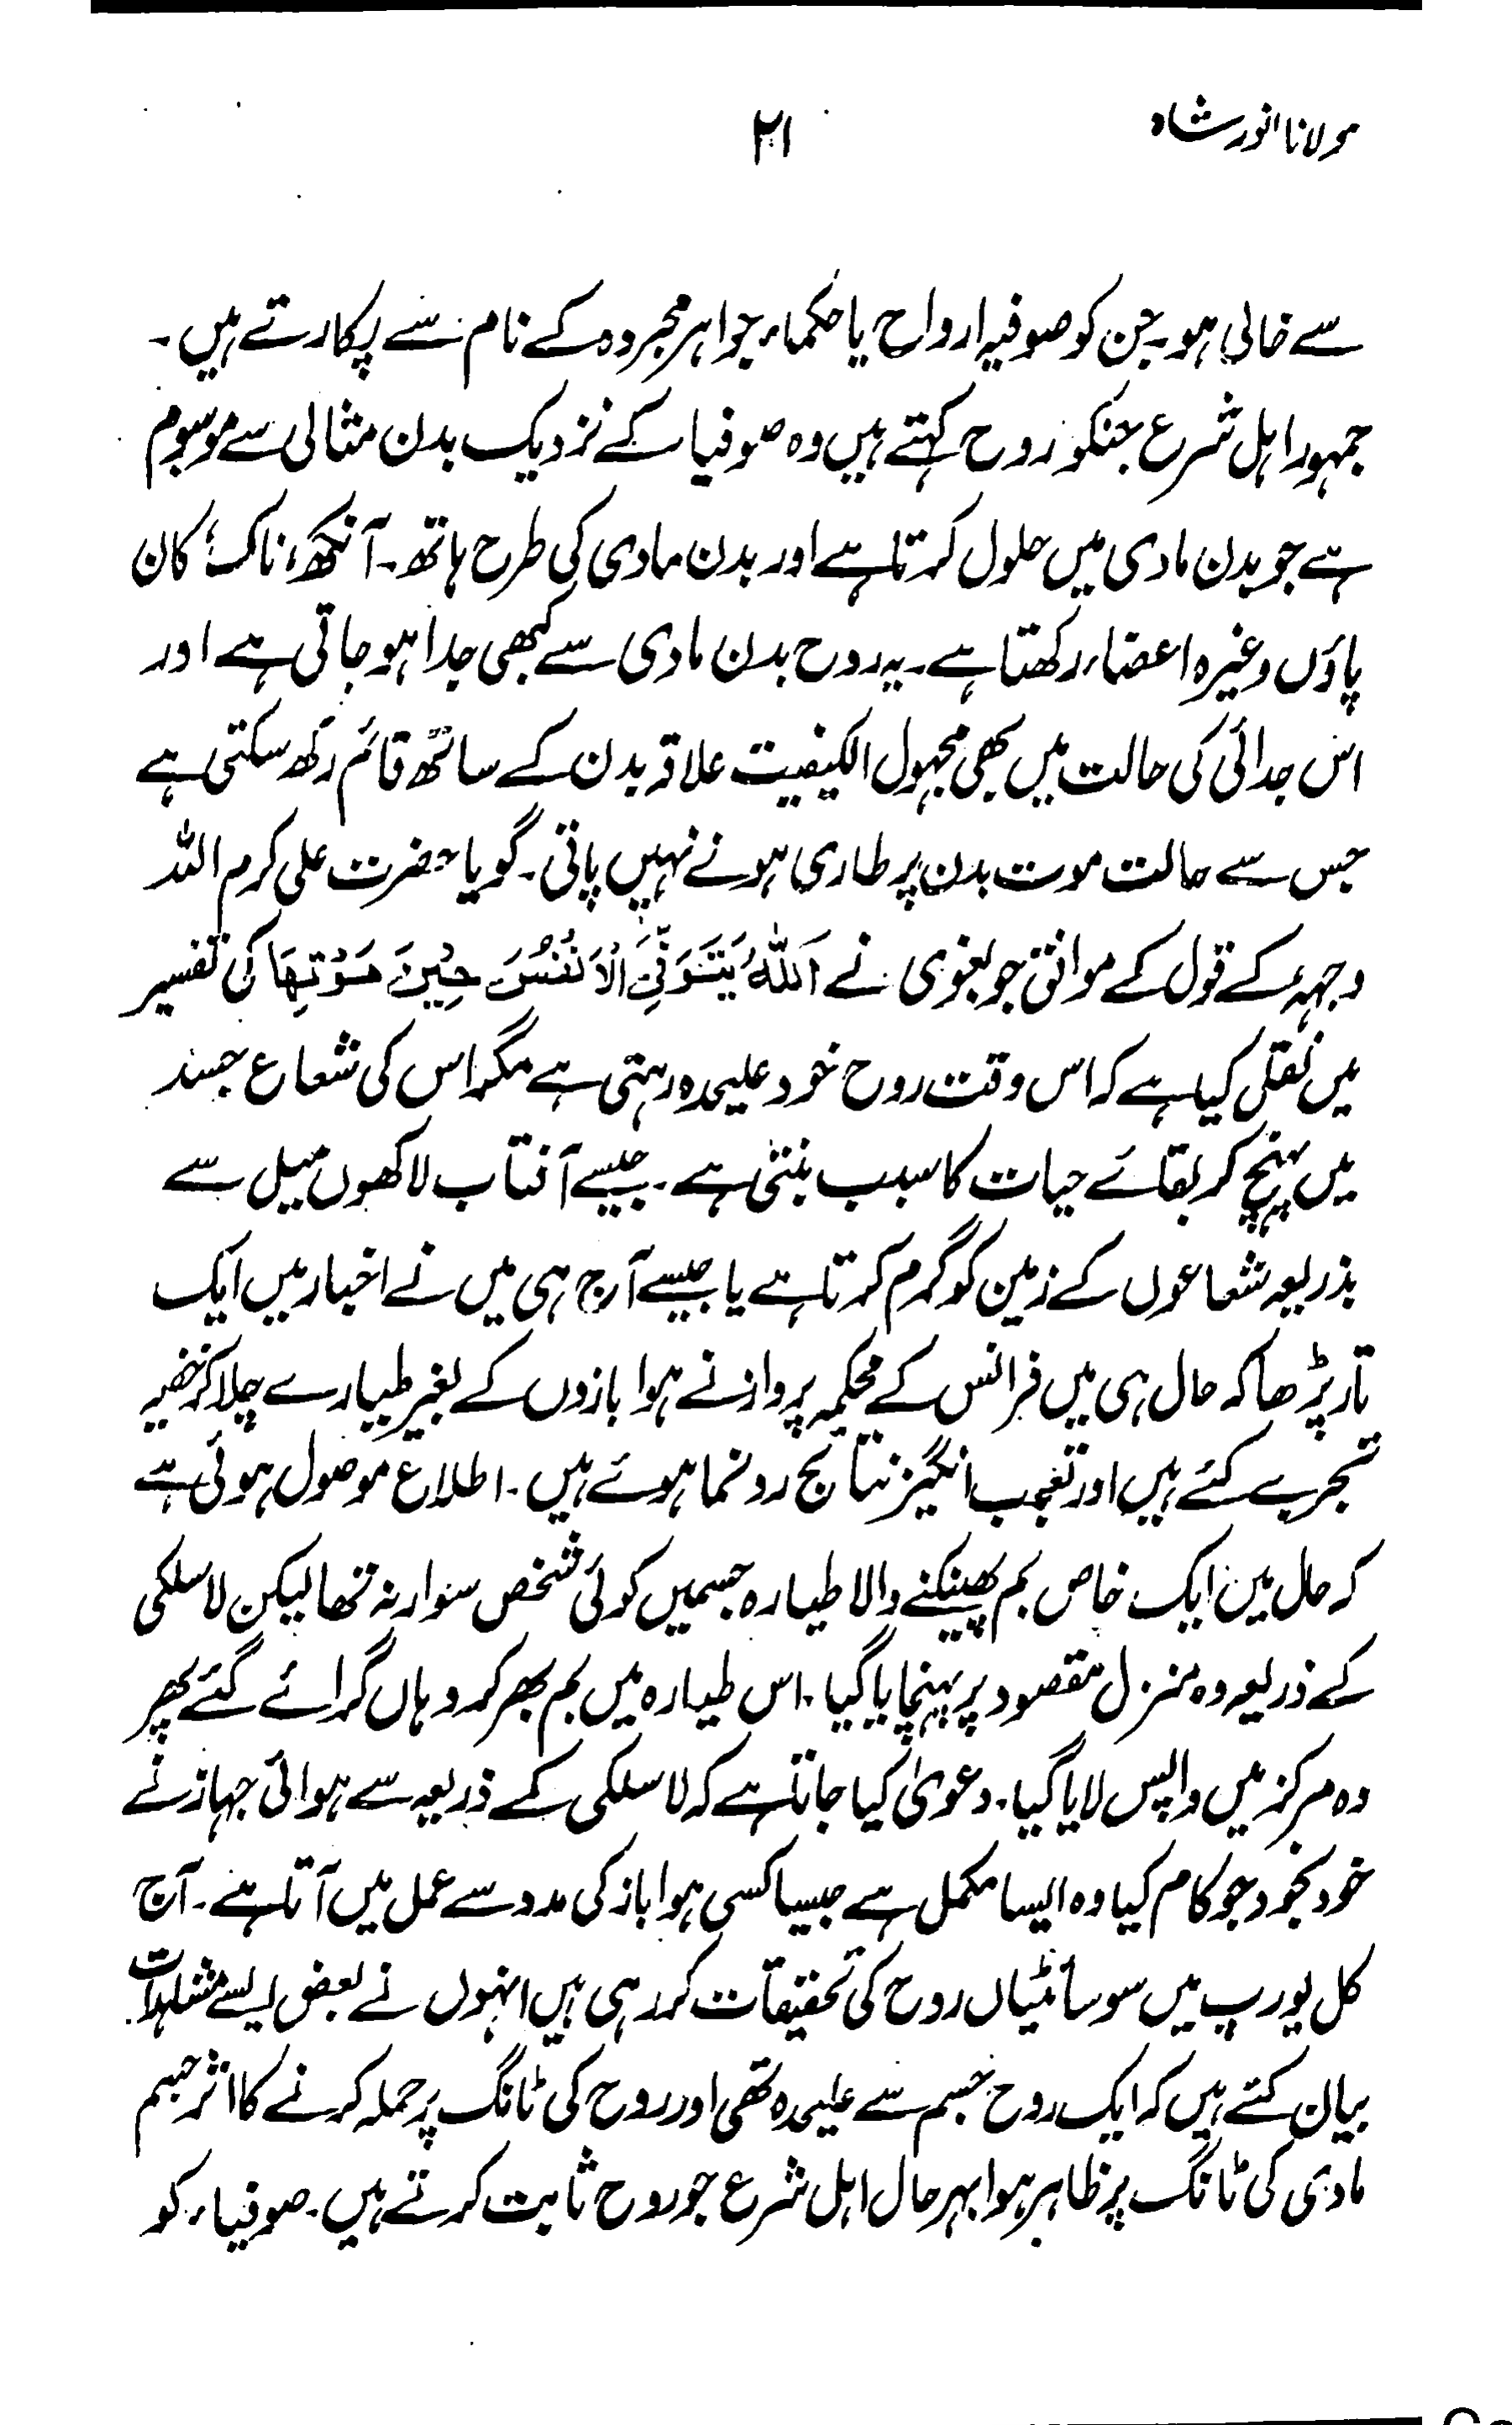 مولانا انور شاہ
۲۱
سے خالی ہو۔ جن کو صوفیہ ارواح یا حکماء جواہر مجردہ کے نام سے پکارتے ہیں۔
جمہور اہل شرع جنکو روح کہتے ہیں وہ صوفیا کے نزدیک بدن مثالی سے موسوم
ہے جو بدن مادی میں حلول کرتا ہے اور بدن مادی کی طرح ہاتھ۔ آنکھ، ناک، کان
پاؤں وغیرہ اعضاء رکھتا ہے۔ یہ روح بدن مادی سے کبھی جدا ہو جاتی ہے اور
اس جدائی کی حالت میں بھی مجہول الکیفیت علاقہ بدن کے ساتھ قائم رکھ سکتی ہے
جس سے حالت موت بدن پر طاری ہونے نہیں پاتی۔ گویا حضرت علی کرم اللہ
وجہہ، کے قول کے موافق جو بغوی نے اَللّٰہُ یَتَوَفَّی الْاَنْفُسَ حِیْنَ مَوْتِھَا کی تفسیر
میں نقل کیا ہے کہ اس وقت روح خود علیحدہ رہتی ہے مگر اس کی شعاع جسد
میں پہنچ کر بقائے حیات کا سبب بنتی ہے۔ جیسے آفتاب لاکھوں میل سے
بذریعہ شعاعوں کے زمین کو گرم کرتا ہے یا جیسے آج ہی میں نے اخبار میں ایک
تار پڑھا کہ حال ہی میں فرانس کے محکمہ پرواز نے ہوا بازوں کے بغیر طیارے چلا کر خفیہ
تجربے کئے ہیں اور تعجب انگیز نتائج رونما ہوئے ہیں۔ اطلاع موصول ہوئی ہے
کہ حال میں ایک خاص بم پھینکنے والا طیارہ جسمیں کوئی شخص سوار نہ تھا لیکن لاسلکی
کے ذریعہ وہ منزل مقصود پر پہنچایا گیا۔ اس طیارہ میں بم بھر کر وہاں گرائے گئے پھر
وہ مرکز میں واپس لایا گیا۔ دعویٰ کیا جاتا ہے کہ لاسلکی کے ذریعہ سے ہوائی جہاز نے
خود بخود جو کام کیا وہ ایسا مکمل ہے جیسا کسی ہوا باز کی مدد سے عمل میں آتا ہے۔ آج
کل یورپ میں سوسائٹیاں روح کی تحقیقات کر رہی ہیں انہوں نے بعض ایسے مشاہدات
بیان کئے ہیں کہ ایک روح جسم سے علیحدہ تھی اور روح کی ٹانگ پر حملہ کرنے کا اثر جسم
مادی کی ٹانگ پر ظاہر ہوا بہر حال اہل شرع جو روح ثابت کرتے ہیں۔ صوفیاء کو